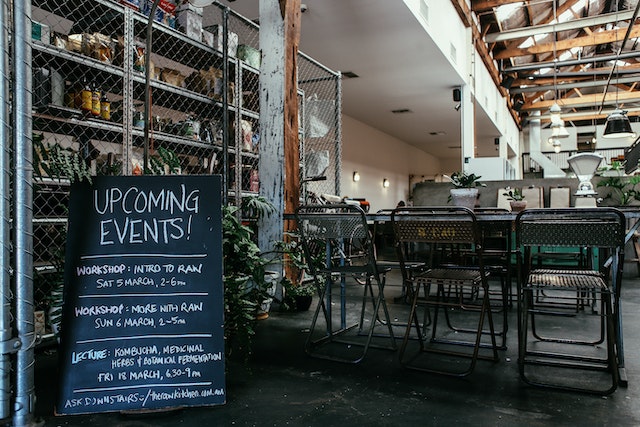 UPCOMING
EVENTS!
WORKSHOP: INTRO TO RAW
SAT 5 MARCH, 2-6PM
WORKSHOP: MORE WITH RAW
SUN 6 MARCH, 2-5PM
LECTURE: KOMBUCHA, MEDICINAL
HERBS & BOTANICAL FERMENTATION
FRI 18 MARCH, 6.30-9PM
ASK DOWNSTAIRS-/therawkitchen.com.au